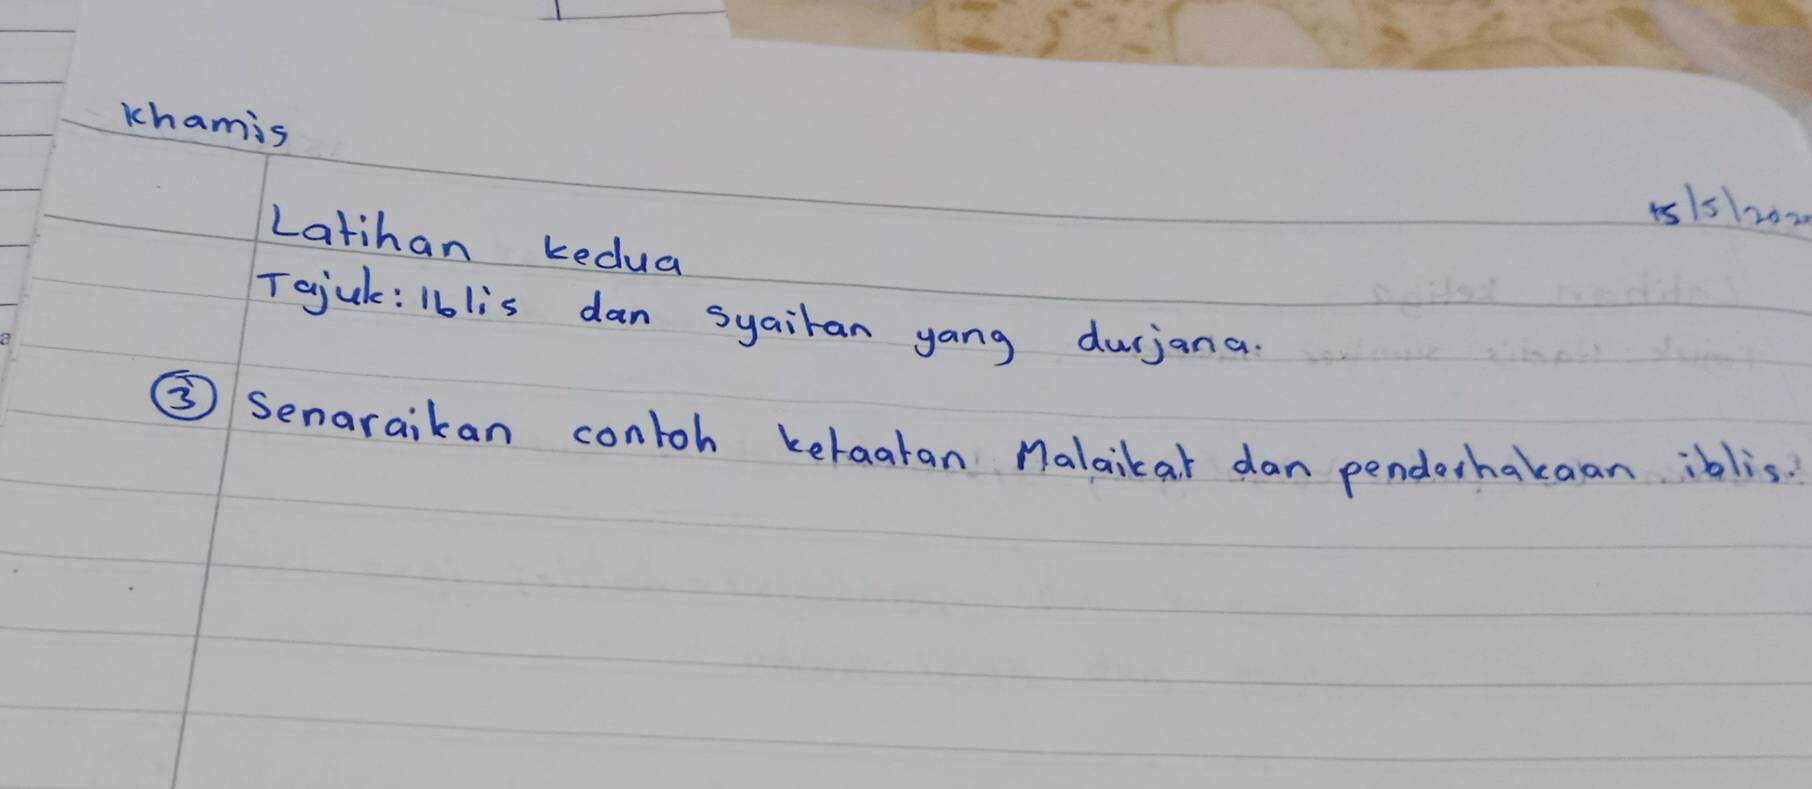 Khamis
15/5/202
Latihan kedua
Tajuk: Iblis dan syaitan yang durjana.
③ Senaraikan contoh ketaatan Malaikat dan penderhakaan iblis?